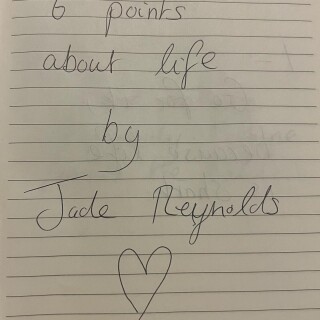 6 points
about life
by
Jade Reynolds